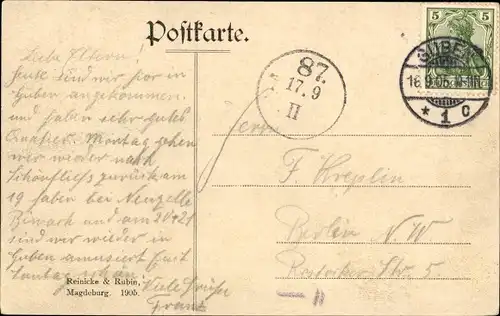 Postkarte.
Liebe Eltern!
Heute sind wir hier in
Guben angekommen
und haben sehr gutes
Quatier. Montag gehen
wir wieder nach
Schönfliess zurück am
19 haben bei Neuzelle
Biwack und am 20+21
sind wir wieder in
Guben amusiert Euch
Viele Grüße
Franz
Reinicke & Rubin,
Magdeburg. 1905.
5 5
GUBEN
16.9.05.
* 1 c
87.
17.9
II
Herrn
F. Kreplin
Berlin N. W
Rostocker Str. 5.